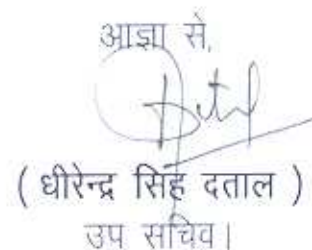 आज्ञा से,
( धीरेन्द्र सिंह दताल )
उप सचिव।